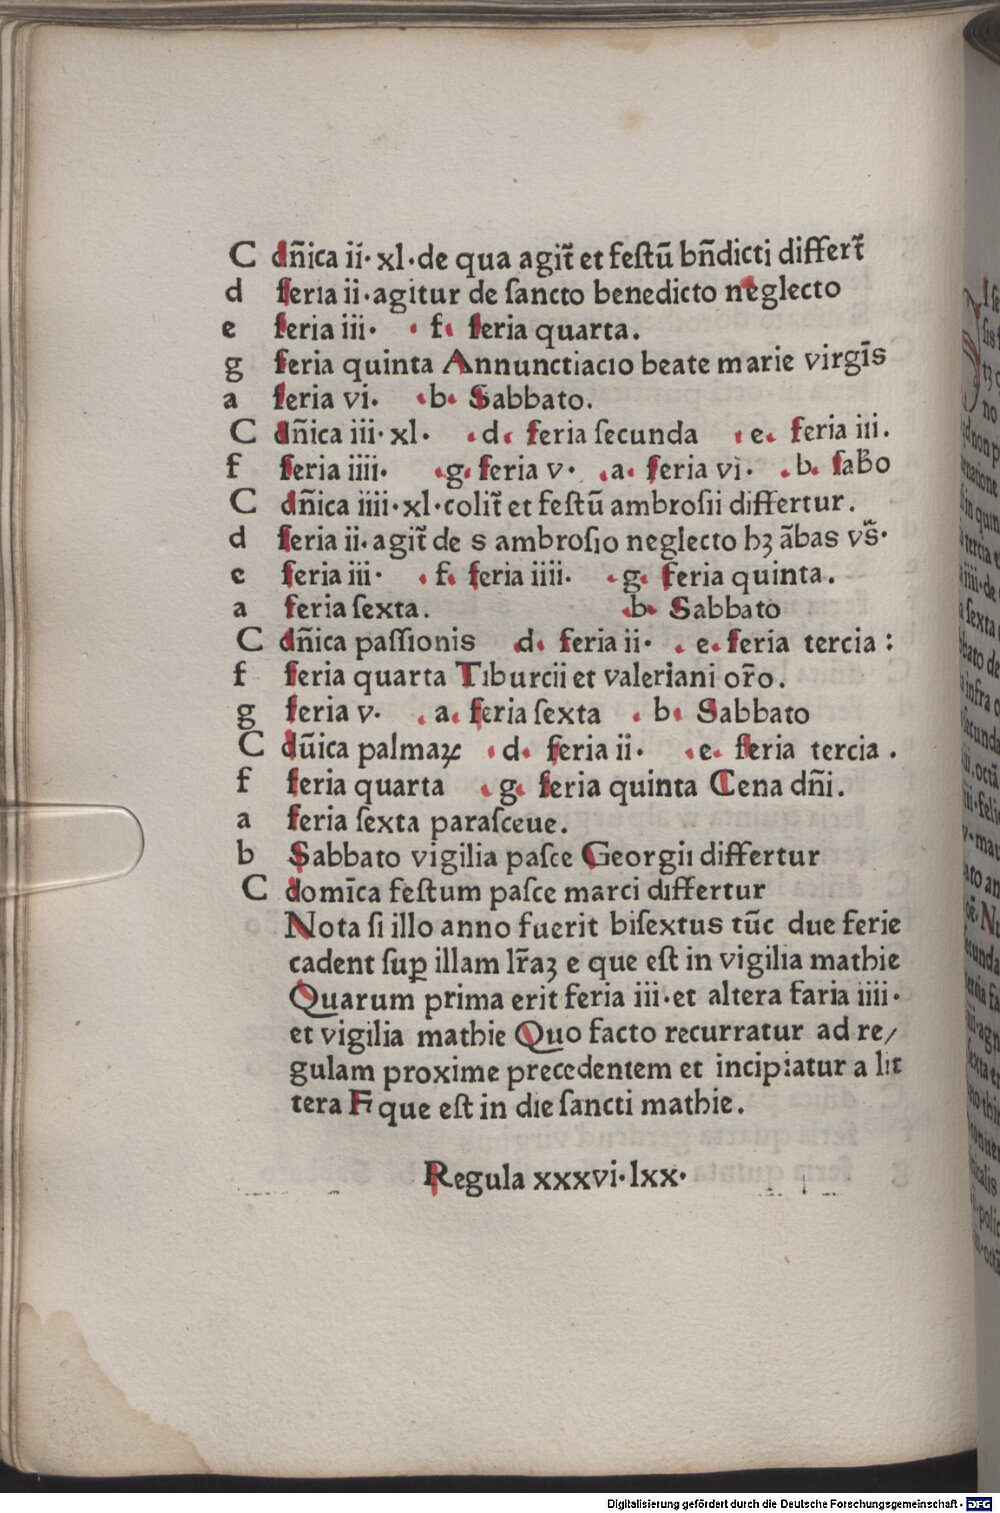 C dñica ii· xl·de qua agit᷑ et feſtū bñdicti differt᷑
d feria ii·agitur de ſancto benedicto neglecto
e feria iii· ·f· feria quarta.
g feria quinta Annunctiacio beate marie virgīs
a feria vi. ·b· Sabbato.
C dñica iii· xl· ·d· feria ſecunda ·e· feria iii.
f feria iiii· ·g· feria v· ·a· feria vi· ·b· ſab̄o
C dñica iiii·xl·colit᷑ et feſtū ambroſii differtur.
d feria ii·agit᷑ de s ambroſio neglecto hꝫ ābas vs̄·
e feria iii· ·f· feria iiii. ·g· feria quinta.
a feria ſexta. ·b· Sabbato
C dñica paſſionis d· feria ii· ·e·feria tercia:
f feria quarta Tiburcii et valeriani or̄o.
g feria v· ·a· feria ſexta ·b· Sabbato
C dūica palmaꝝ ·d· feria ii· ·e· feria tercia.
f feria quarta ·g· feria quinta Cena dñi.
a feria ſexta paraſceue.
b Sabbato vigilia paſce Georgii differtur
C domīca feſtum paſce marci differtur
Nota ſi illo anno fuerit biſextus tūc due ferie
cadent ſuꝑ illam lr̄aꝫ e que eſt in vigilia mathie
Quarum prima erit feria iii·et altera faria iiii·
et vigilia mathie Quo facto recurratur ad re/
gulam proxime precedentem et incipiatur a lit
tera F que eſt in die ſancti mathie.
Regula xxxvi·lxx·
Digitalisierung gefördert durch die Deutsche Forschungsgemeinschaft - DFG